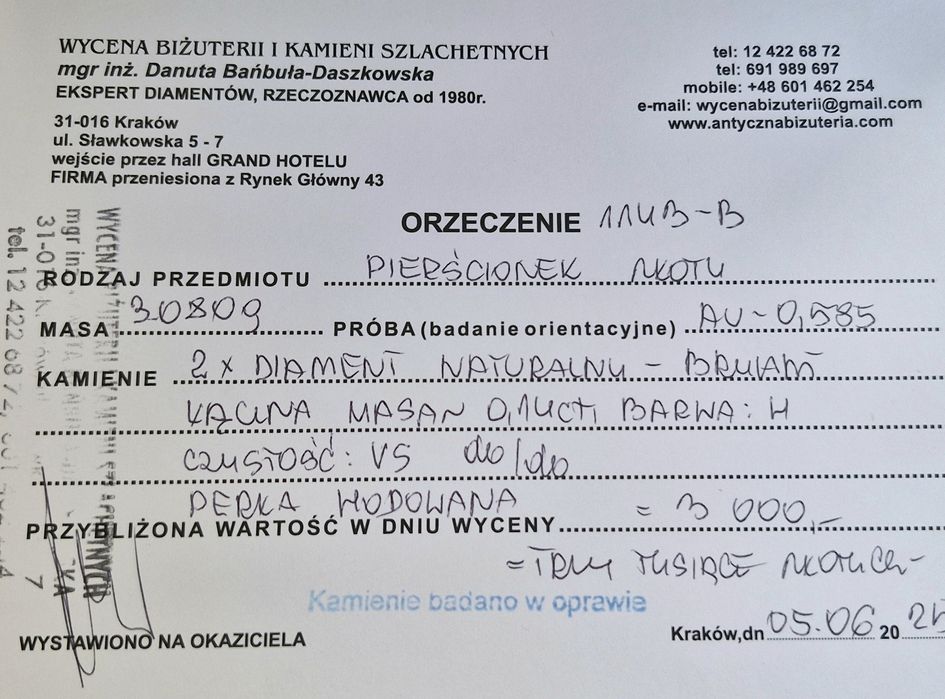 WYCENA BIŻUTERII I KAMIENI SZLACHETNYCH
mgr inż. Danuta Bańbuła-Daszkowska
EKSPERT DIAMENTÓW, RZECZOZNAWCA od 1980r.
31-016 Kraków
ul. Sławkowska 5 - 7
wejście przez hall GRAND HOTELU
FIRMA przeniesiona z Rynek Główny 43
tel: 12 422 68 72
tel: 691 989 697
mobile: +48 601 462 254
e-mail: wycenabizuterii@gmail.com
www.antycznabizuteria.com
ORZECZENIE
RODZAJ PRZEDMIOTU PIERŚCIONEK ZŁOTY
MASA 3,080g PRÓBA (badanie orientacyjne) AU-0,585
KAMIENIE 2 x DIAMENT NATURALNY - BRYLANT
ŁĄCZNA MASA 0,14ct, BARWA: H
CZYSTOŚĆ: VS do/do
PERŁA HODOWANA
PRZYBLIŻONA WARTOŚĆ W DNIU WYCENY = 3 000,-
= TRZY TYSIĄCE ZŁOTYCH -
Kamienie badano w oprawie
WYSTAWIONO NA OKAZICIELA
Kraków,dn 05.06 20